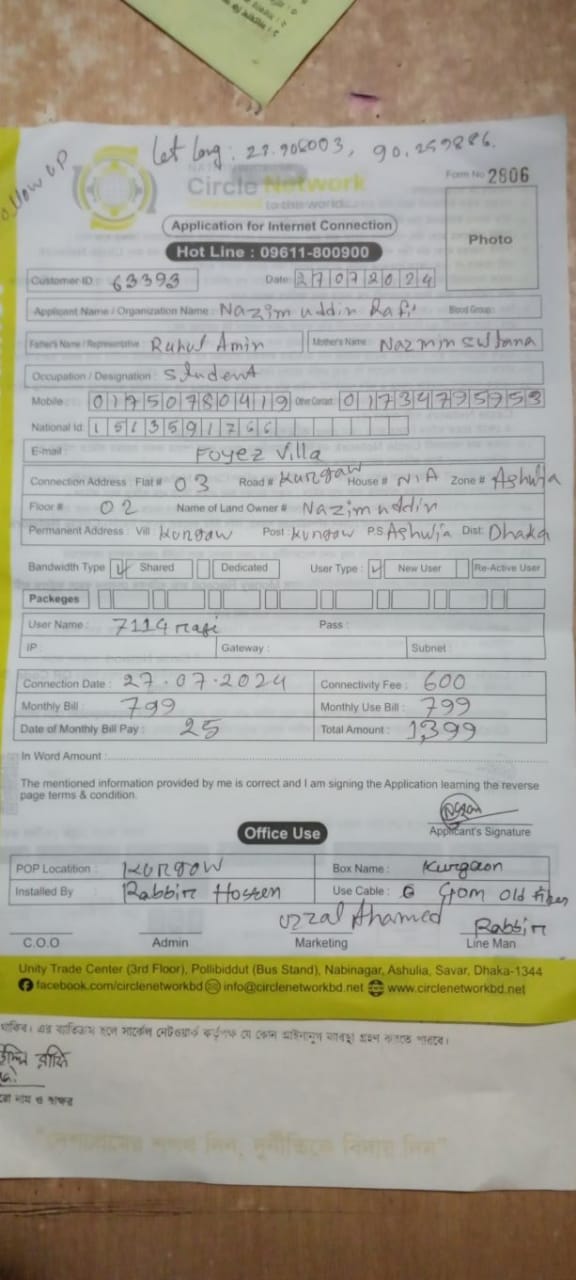 Let Long : 23.906003, 90.259886.
Follow UP
Circle Network
Connected to the world
Form No 2806
Application for Internet Connection
Photo
Hot Line : 09611-800900
Customer ID : 63393 Date: 27072024
Applicant Name / Organization Name : Nazim uddin Rafi Blood Group:
Father's Name / Representative : Ruhul Amin Mother's Name : Nazmin Sultana
Occupation / Designation : Student
Mobile : 01750780419 Other Contact: 01734795953
National Id: 1513591766
E-mail : Foyez Villa
Connection Address : Flat # 03 Road # Kurgaw House # N/A Zone # Ashulia
Floor # 02 Name of Land Owner # Nazim uddin
Permanent Address : Vill Kurgaw Post: Kurgaw P.S Ashulia Dist: Dhaka
Bandwidth Type Shared Dedicated User Type : New User Re-Active User
Packeges
User Name : 7114 rafi Pass :
IP Gateway : Subnet :
Connection Date : 27.07.2024 Connectivity Fee : 600
Monthly Bill : 799 Monthly Use Bill : 799
Date of Monthly Bill Pay : 25 Total Amount : 1,399
In Word Amount :
The mentioned information provided by me is correct and I am signing the Application learning the reverse
page terms & condition.
Applicant's Signature
Office Use
POP Locatition : Kurgow Box Name : Kurgaon
Installed By Rabbir Hossen Use Cable : Old Fiber
Uzzal Ahamed Rabbir
C.O.O Admin Marketing Line Man
Unity Trade Center (3rd Floor), Pollibiddut (Bus Stand), Nabinagar, Ashulia, Savar, Dhaka-1344
facebook.com/circlenetworkbd info@circlenetworkbd.net www.circlenetworkbd.net
থাকিব। এর ব্যতিক্রম হলে সার্কেল নেটওয়ার্ক কর্তৃপক্ষ যে কোন আইনানুগ ব্যবস্থা গ্রহণ করতে পারবে।
রাফি
নাম ও স্বাক্ষর
"দেশপ্রেমের শপথ নিন, দুর্নীতিকে বিদায় দিন"